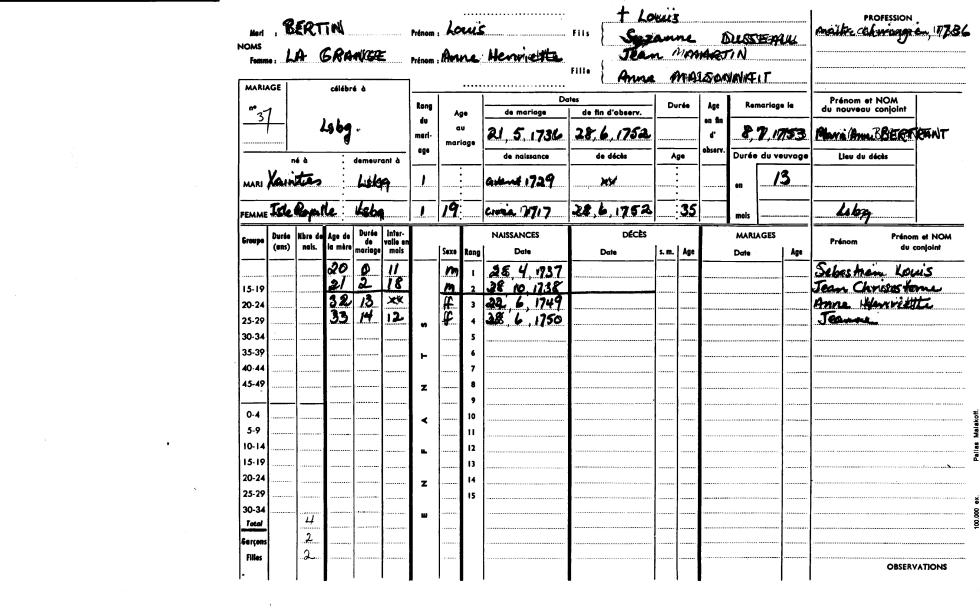 Mari : BERTIN Prénom : Louïs Fils { † Louïs
Suzanne DUSSEAUU
NOMS
Femme : LA GRANGE Prénom : Anne Henriette Fille { Jean MARTIN
Anne
PROFESSION
maître chirurgien, 1736
MARIAGE célébré à
n° 37 Lsbg.
né à demeurant à
MARI Xaintes Lsbg
FEMME Isle Royalle Lsbg
Rang du mari- age Age au mariage
1
1 19
Dates
de mariage de fin d'observ.
21, 5, 1736 28, 6, 1752
de naissance de décès
avant 1729 xx
circa 1717 28, 6, 1752
Durée Age en fin d' observ.
Age
35
Remariage le
8, 7, 1753
Durée du veuvage
en 13
mois
Prénom et NOM du nouveau conjoint
Marie Anne BERTRANT
Lieu du décès
Lsbg
Groupe Durée (ans) Nbre de nais. Age de la mère Durée de mariage Inter- valle en mois Sexe Rang NAISSANCES Date DÉCÈS Date s. m. Age MARIAGES Date Age Prénom Prénom et NOM du conjoint
20 0 11 m 1 28, 4, 1737 Sebastien Louis
15-19 21 2 18 m 2 28 10, 1738 Jean Chrisostome
20-24 32 13 xx f 3 22, 6, 1749 Anne Henriette
25-29 33 14 12 f 4 28, 6, 1750 Jeanne
30-34 5
35-39 6
40-44 7
45-49 8
9
0-4 10
5-9 11
10-14 12
15-19 13
20-24 14
25-29 15
30-34
Total 4
Garçons 2
Filles 2
E N F A N T S
OBSERVATIONS
100,000 ex. Malakoff.